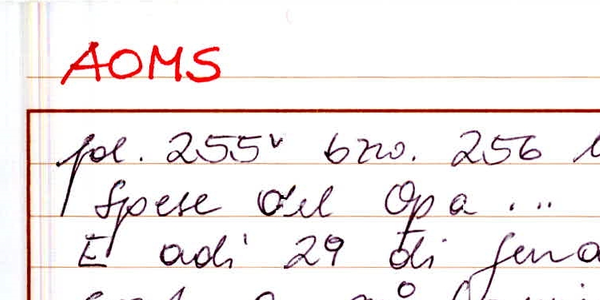 AOMS
fol. 255v bzo. 256
Spese del Opa ...
E adi 29 di